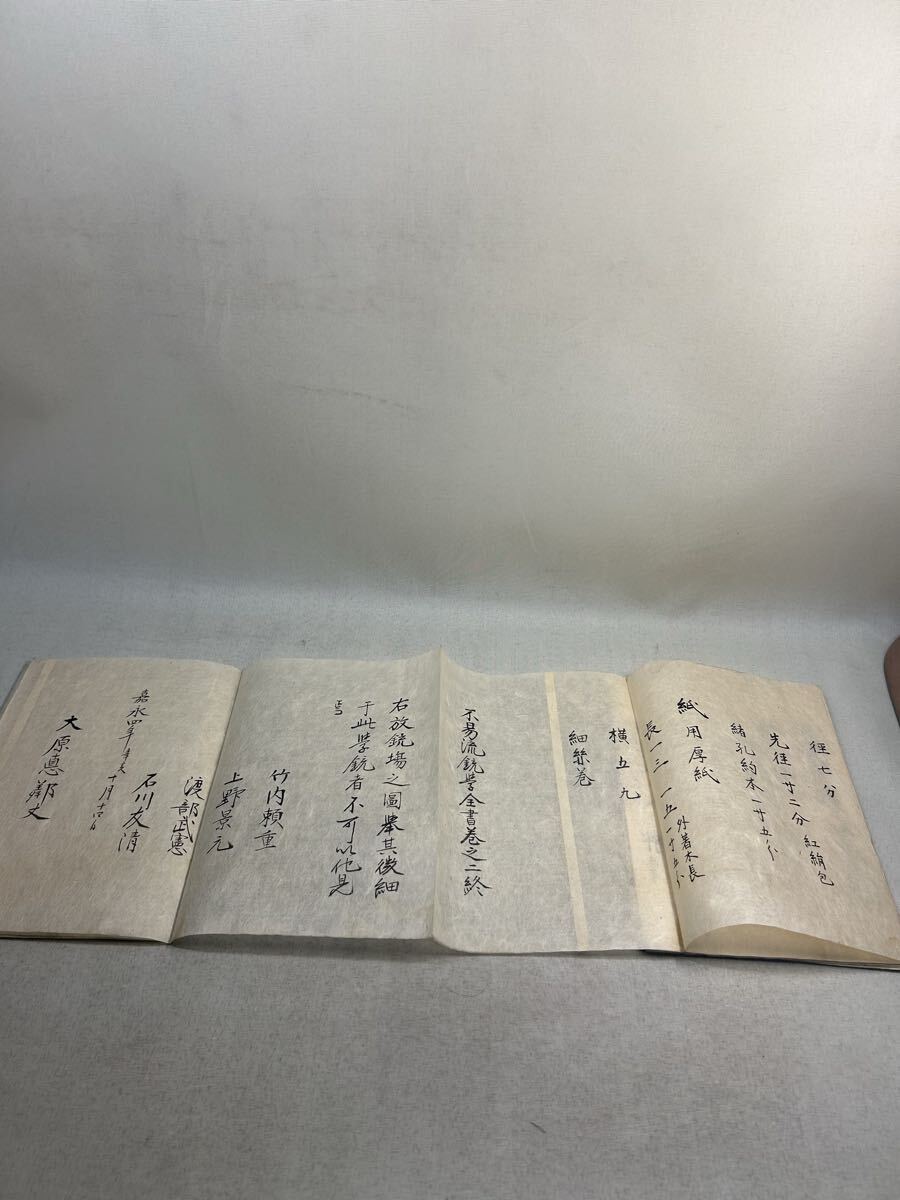 径七分
先径一寸二分 紅絹包
緒孔約本一寸五分
紙用厚紙
長一三 一五一寸五分 外着木長
横五九
細絲巻
不易流銃学全書巻之二終
右放銃場之圖挙其微細
于此学銃者不可以他見
焉
竹内頼重
上野景元
渡部武憲
石川友清
嘉永四年 十月十六日
大原恵鄰丈